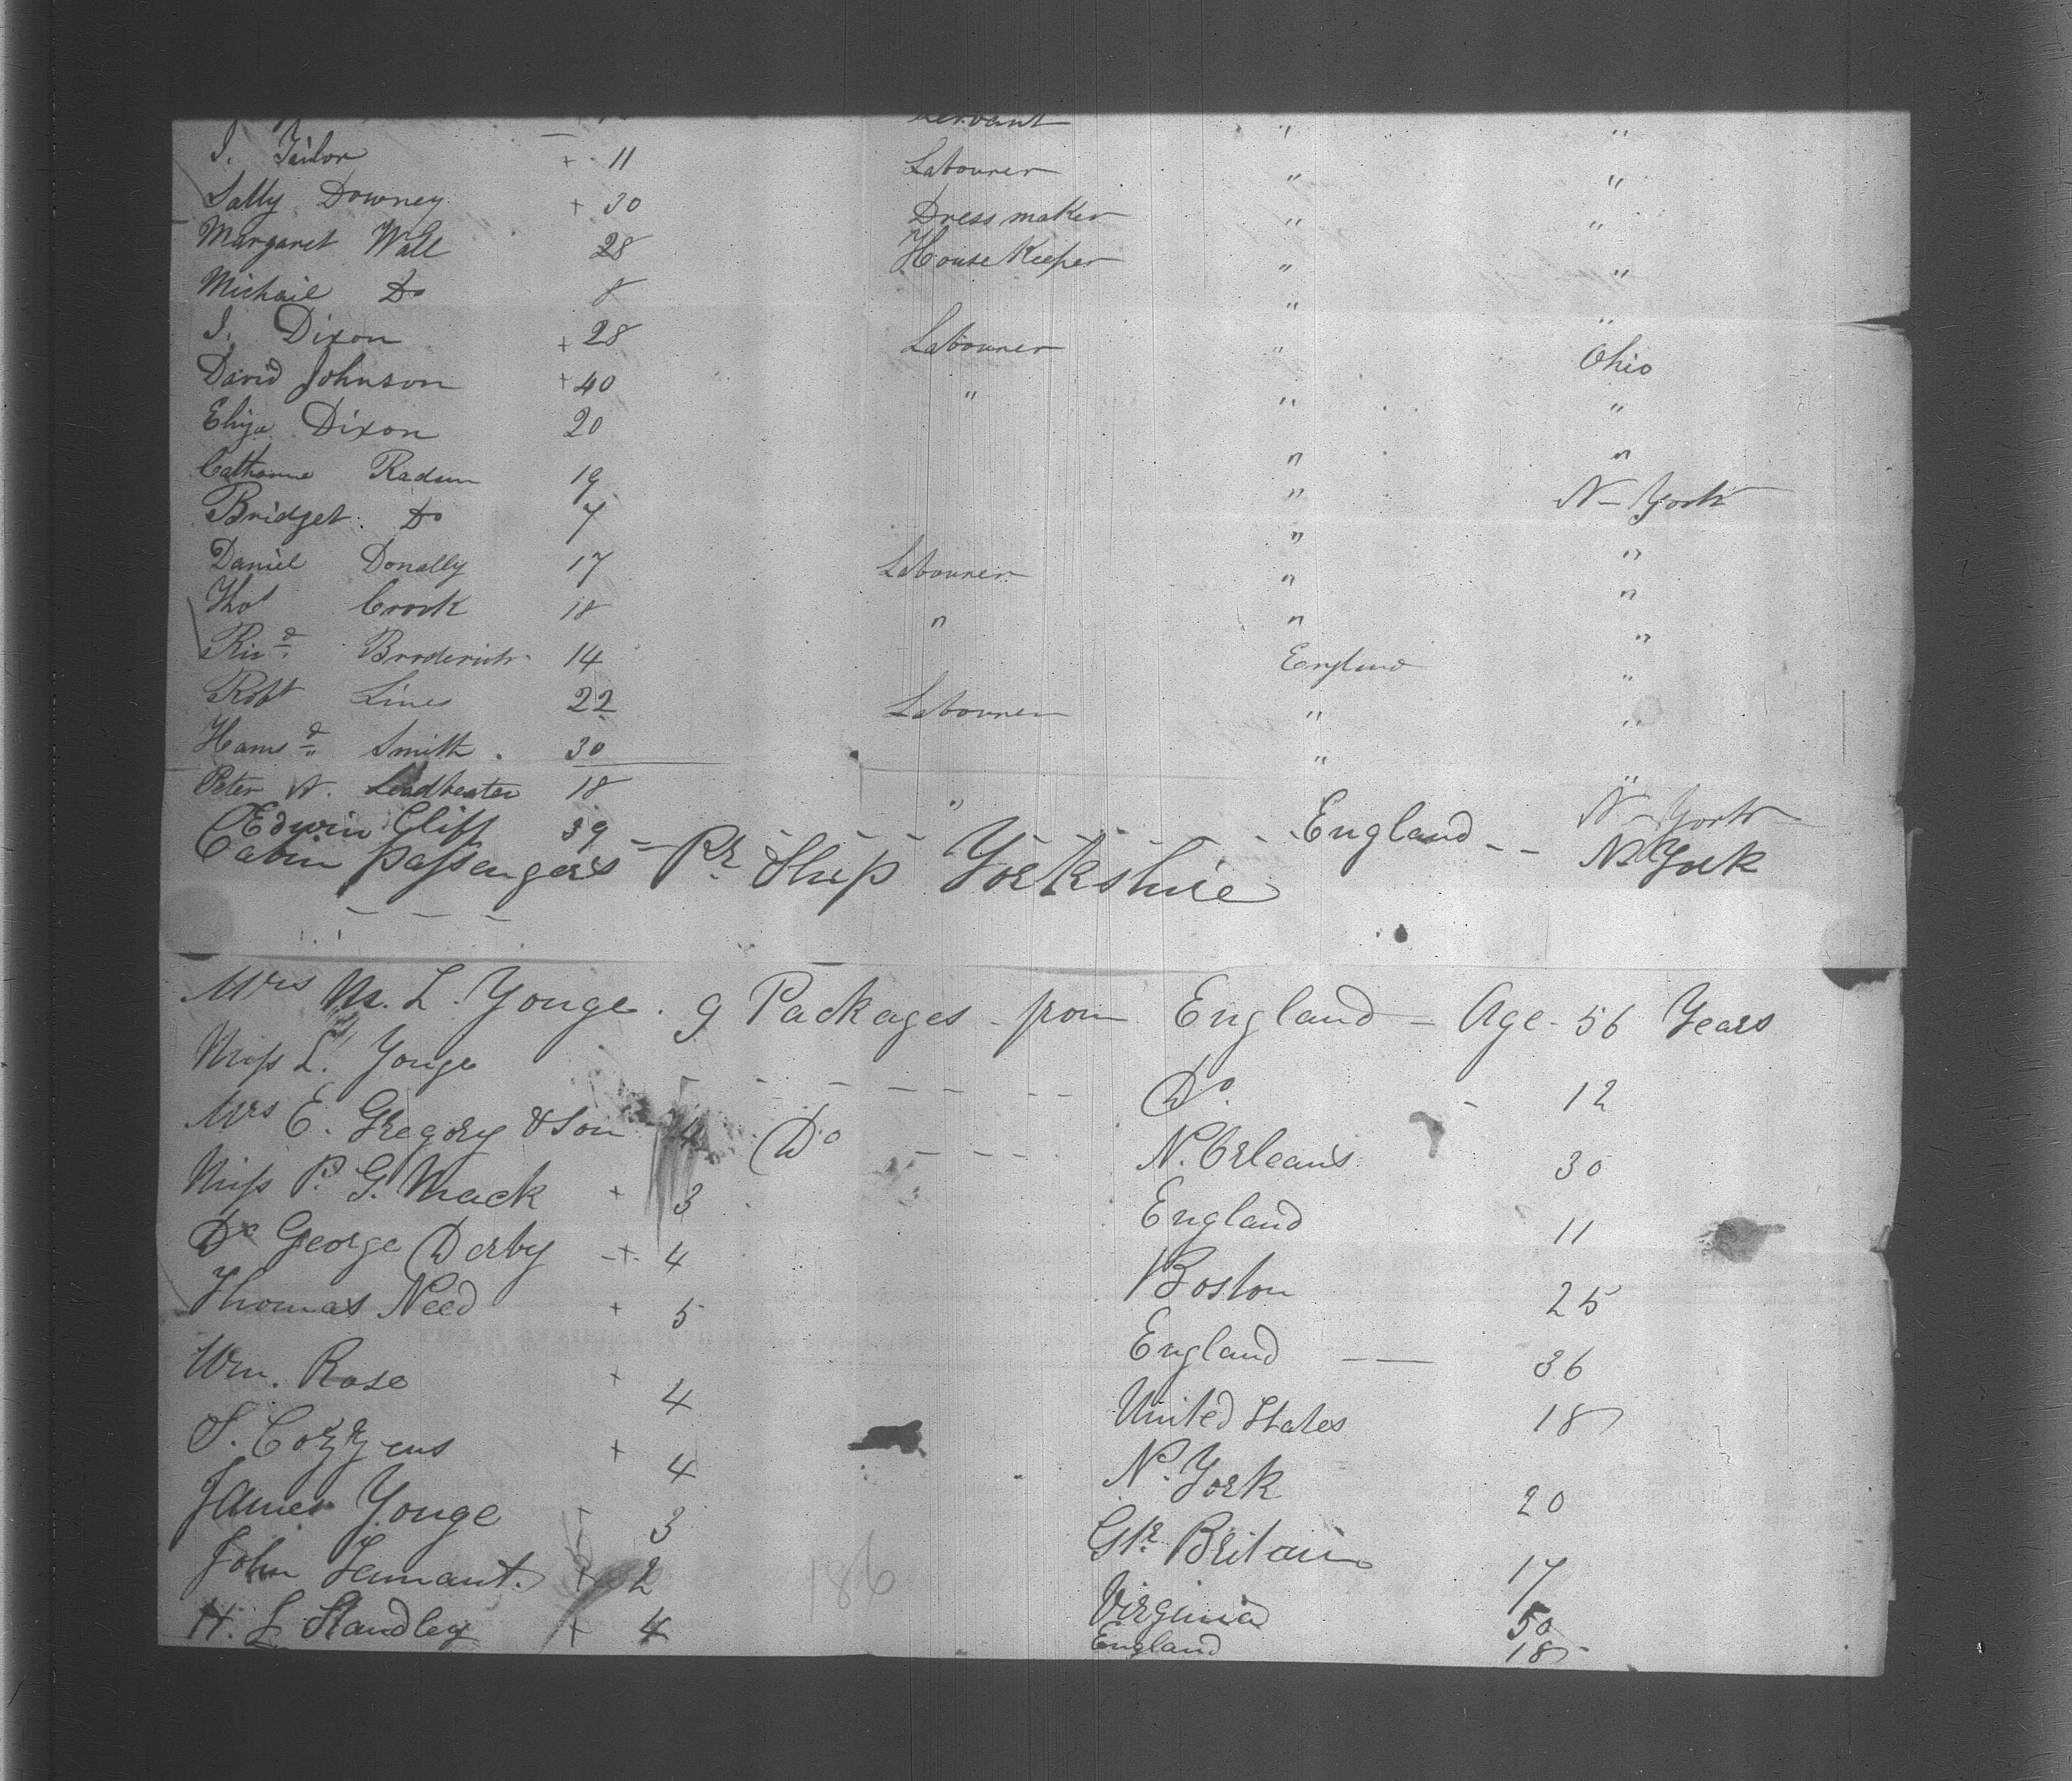 Servant " "
I. Tailor + 11 Labourer " "
Sally Downey + 30 Dress maker " "
Margaret Wall 28 House Keeper " "
Michail Do 8 " "
I. Dixon + 28 Labourer " Ohio
David Johnson + 40 " " "
Eliza Dixon 20 " "
Catharine Radum 19 " N-York
Bridget Do 7 " "
Daniel Donally 17 Labourer " "
Thos Crook 18 " " "
Ricd Broderick 14 England "
Robt Lines 22 Labourer " "
Smith 30 " "
Peter A. Leadbeater 18 " N-York
Edwin Cliff 39 - - - - - England - - N York
Cabin passengers - Pr Ship Yorkshire
Mrs M. L. Yonge. 9 Packages - from England - Age - 56 Years
Miss L. Yonge - - - - - - Do. - 12
Mrs E. Gregory & Son 14 Do - - - - N. Orleans 30
Miss P. G. Mack + 3 England 11
Dr George Derby - + 4 Boston 25
Thomas Need + 5 England - - 36
Wm. Rose + 4 United States 18
S. Cozzens + 4 N. York 20
James Yonge + 3 Gt. Britain 17
John Tennant. + 2 Virginia 50
H. L Standley + 4 England 18
186